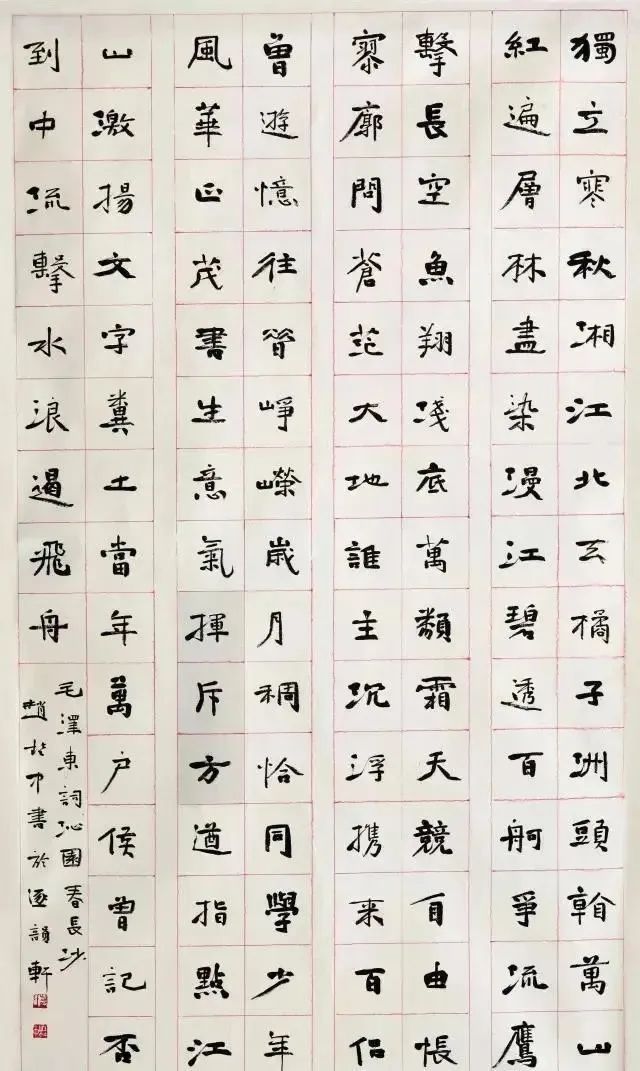 獨立寒秋湘江北去橘子洲頭看萬山
紅遍層林盡染漫江碧透百舸爭流鷹
擊長空魚翔淺底萬類霜天競自由悵
寥廓問蒼茫大地誰主沉浮携來百侣
曾遊憶往昔崢嶸歲月稠恰同學少年
風華正茂書生意氣揮斥方遒指點江
山激揚文字糞土當年萬户侯曾記否
到中流擊水浪遏飛舟
毛澤東詞沁園春長沙
趙書於逐韻軒